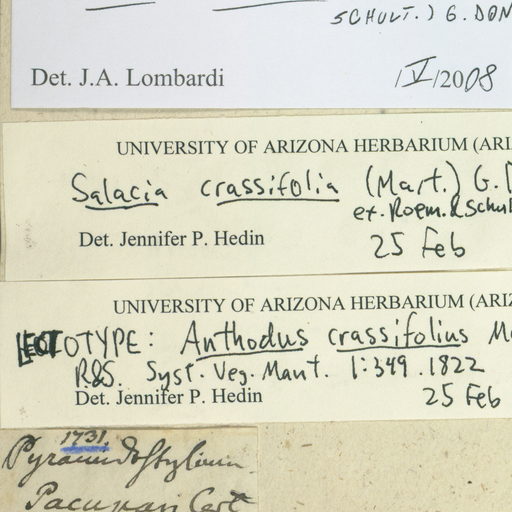 SCHULT.) G. DON
Det. J.A. Lombardi /V/2008
UNIVERSITY OF ARIZONA HERBARIUM (ARI
Salacia crassifolia (Mart.) G. D
ex. Roem. & Schul
Det. Jennifer P. Hedin 25 Feb
UNIVERSITY OF ARIZONA HERBARIUM (ARIZ
LECTOTYPE: Anthodus crassifolius Ma
R&S. Syst. Veg. Mant. 1:349.1822
Det. Jennifer P. Hedin 25 Feb
1731.
Pacupari